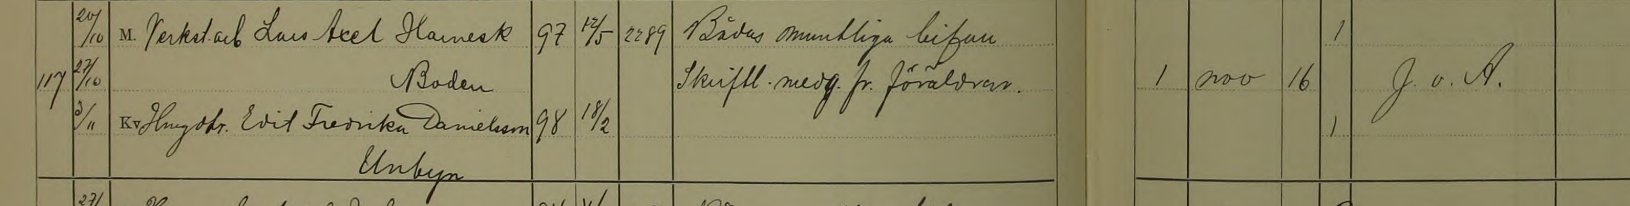 20/10 M. Verkst.arb Lars Axel Harnesk 97 12/5 2289 Bådas muntliga bifan 1
117 27/10 Boden Skriftl. medg. fr. föräldrar. 1 nov 16 J. v. A.
3/11 Kv Hmgdtr. Edit Fredrika Danielsson 98 18/2 1
Unbyn
27/